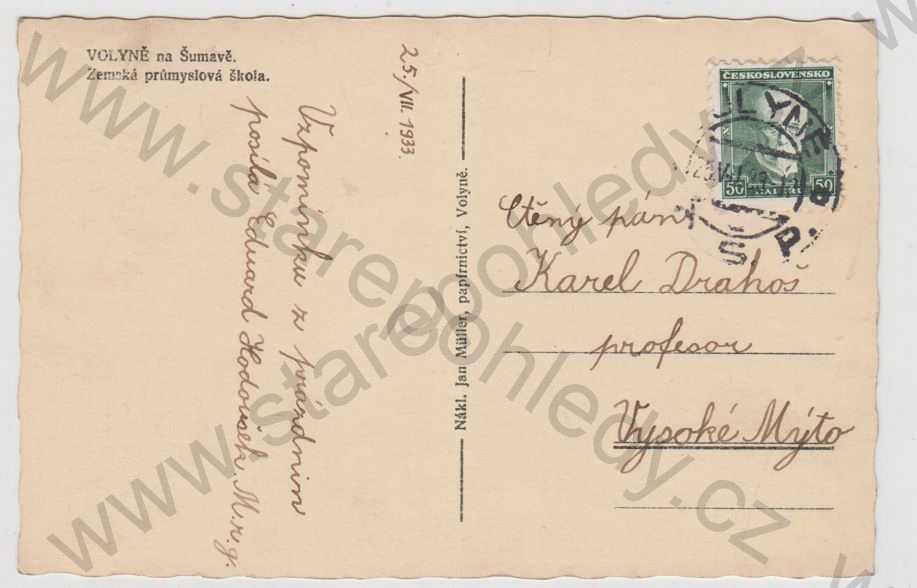 VOLYNĚ na Šumavě.
Zemská průmyslová škola.
25./VII. 1933.
Vzpomínku z prázdnin
posílá Eduard
Nákl. Jan Müller, papírnictví, Volyně.
ČESKOSLOVENSKO
50 50
Ctěný pán
Karel Drahoš
profesor
Vysoké Mýto
www.starepohledy.cz
www.starepohledy.cz